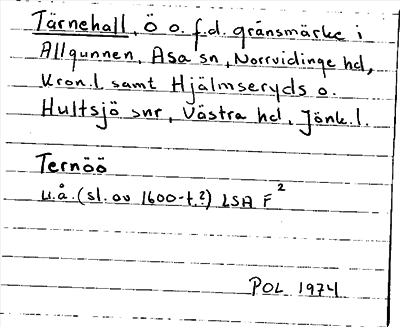 Tärnehall, Ö o. f.d. gränsmärke i
Allgunnen, Asa sn, Norrvidinge hd,
Kron.l. samt Hjälmseryds o.
Hultsjö snr, Västra hd, Jönk.l.
Ternöö
u.å. (sl. av 1600-t.?) LSA F²
POL 1974